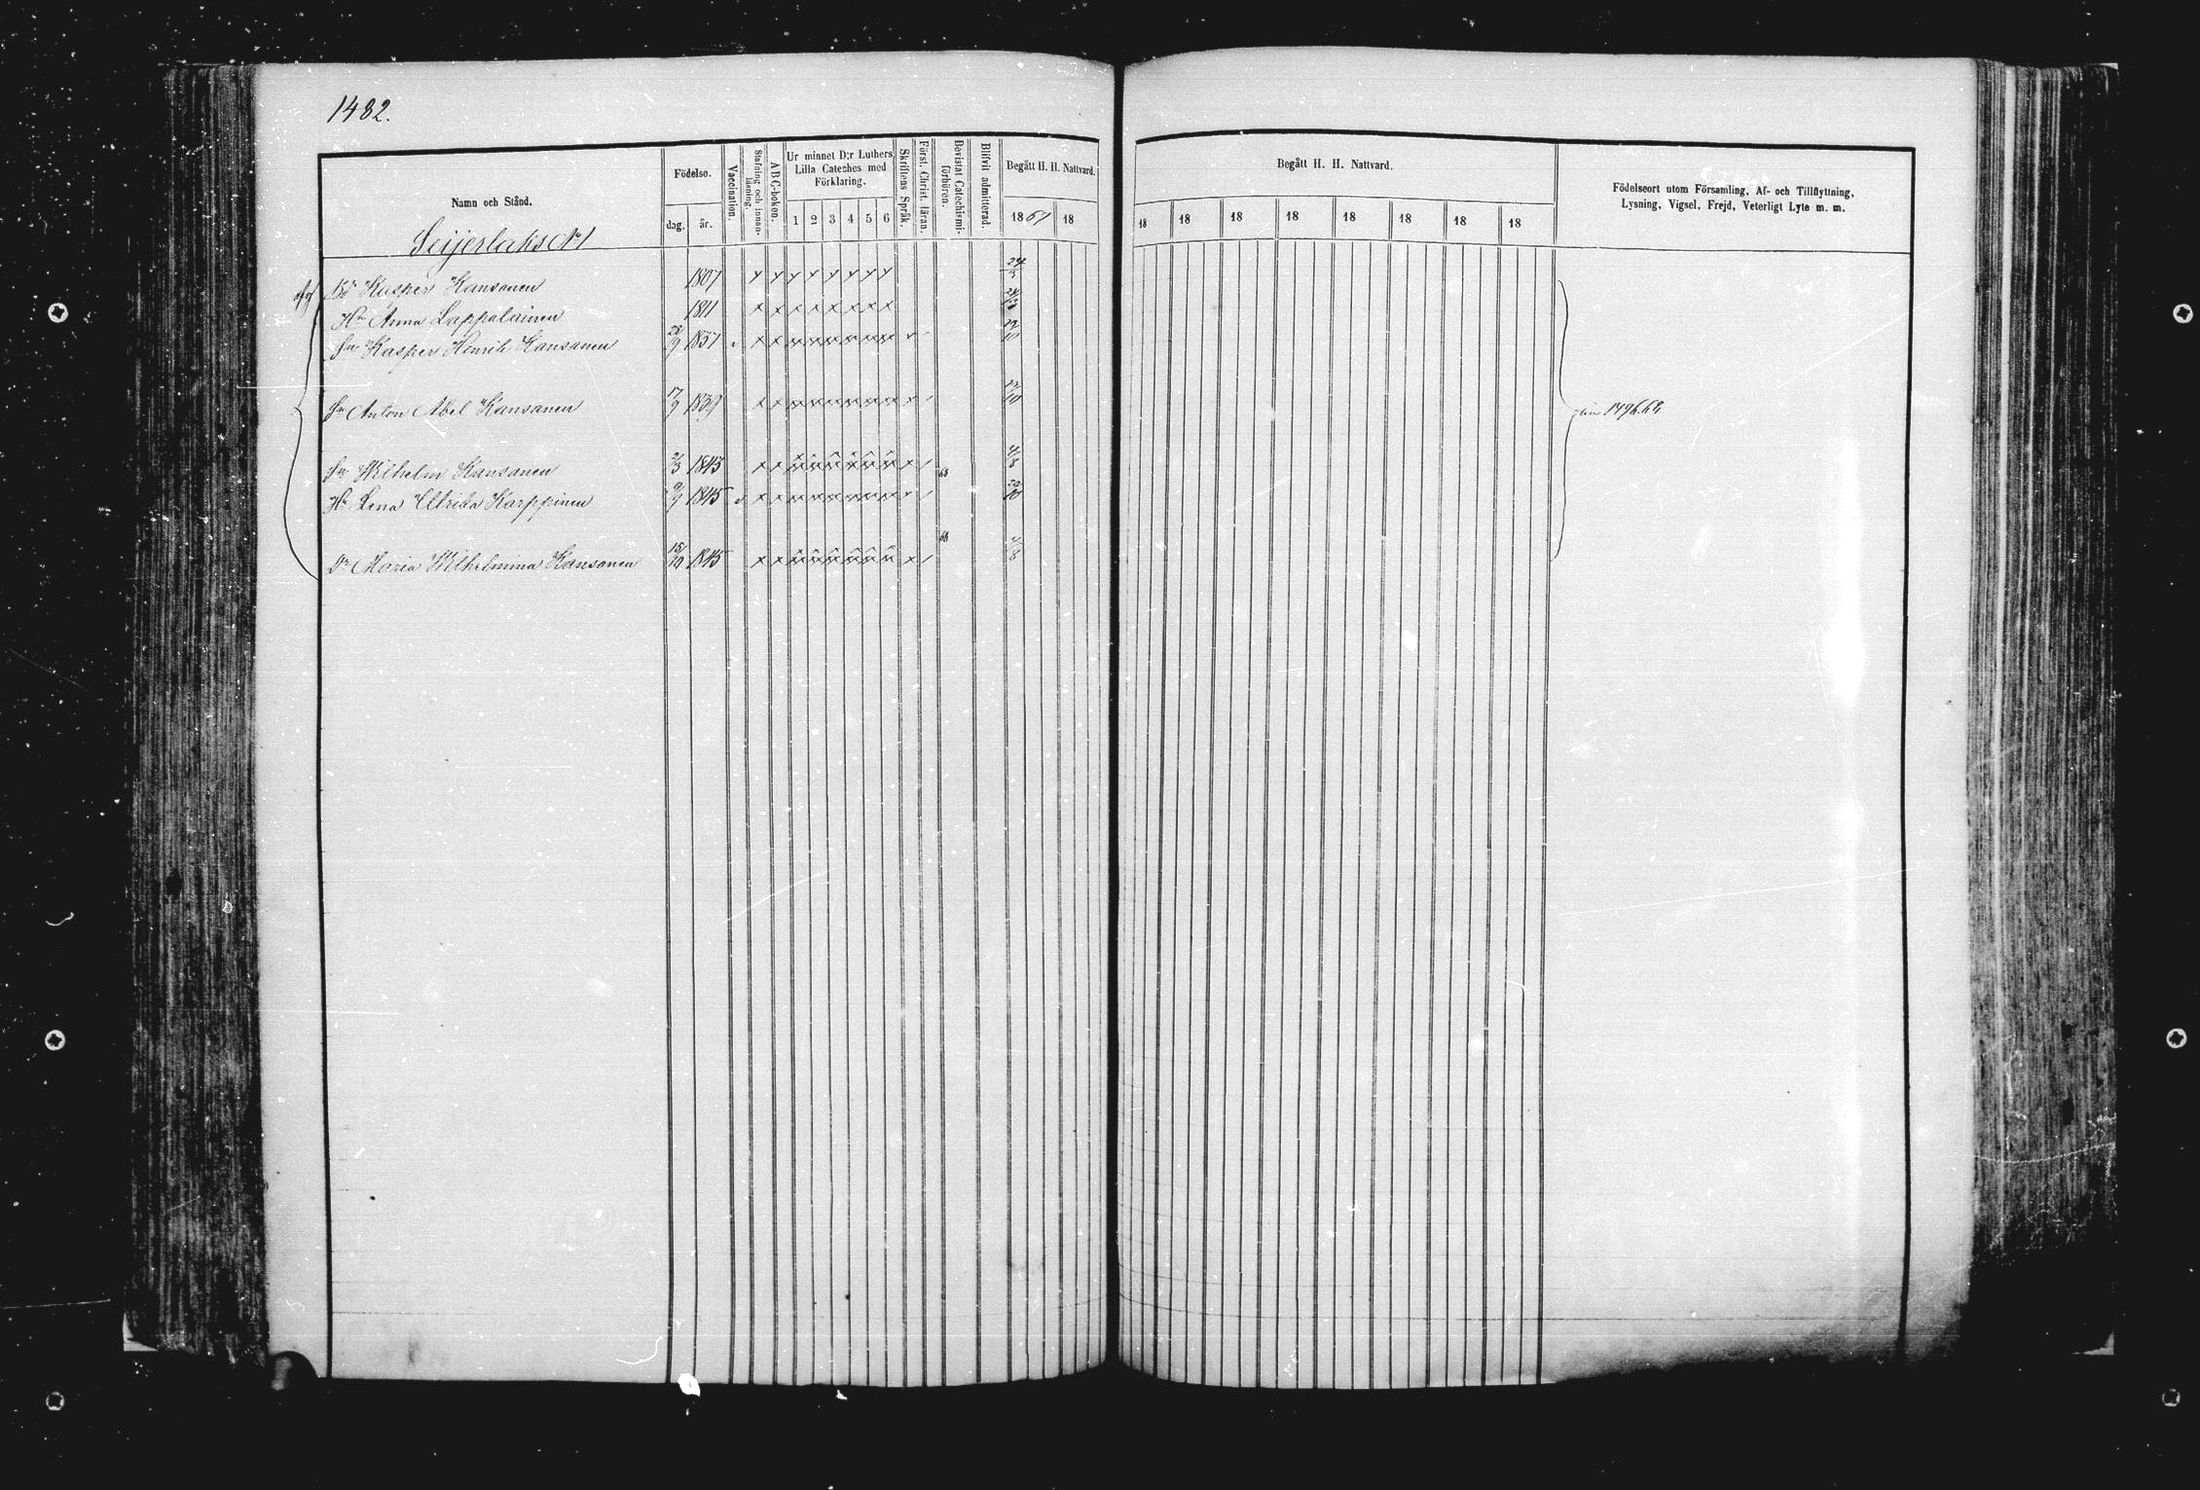 1482.
Namn och Stånd.
Födelse.
dag. år.
Vaccination.
Stafning och innan-läsning.
ABC-boken.
Ur minnet D:r Luthers
Lilla Cateches med
Förklaring.
1 2 3 4 5 6
Skriftens Språk.
Först. Christ. läran.
Bevistat Catechismi-förhören.
Blifvit admitterad.
Begått H. H. Nattvard.
18 61 18
Begått H. H. Nattvard.
18 18 18 18 18 18 18 18
Födelseort utom Församling, Af- och Tillflyttning,
Lysning, Vigsel, Frejd, Veterligt Lyte m. m.
Seijerlaks N 1
Kasper Kansanen 1807 24/3
Hu Anna Lappalainen 1811 24/3
Sn Kasper Henrik Kansanen 1837 13/10
Sn Anton Abel Kansanen 17/9 1839 13/10
1496.68
Sn Wilhelm Kansanen 2/3 1843 68 4/8
Hu Lena Ulrika Karppinen 9/9 1845 20/10
Dr Maria Wilhelmina Kansanen 15/10 1845 68 4/8